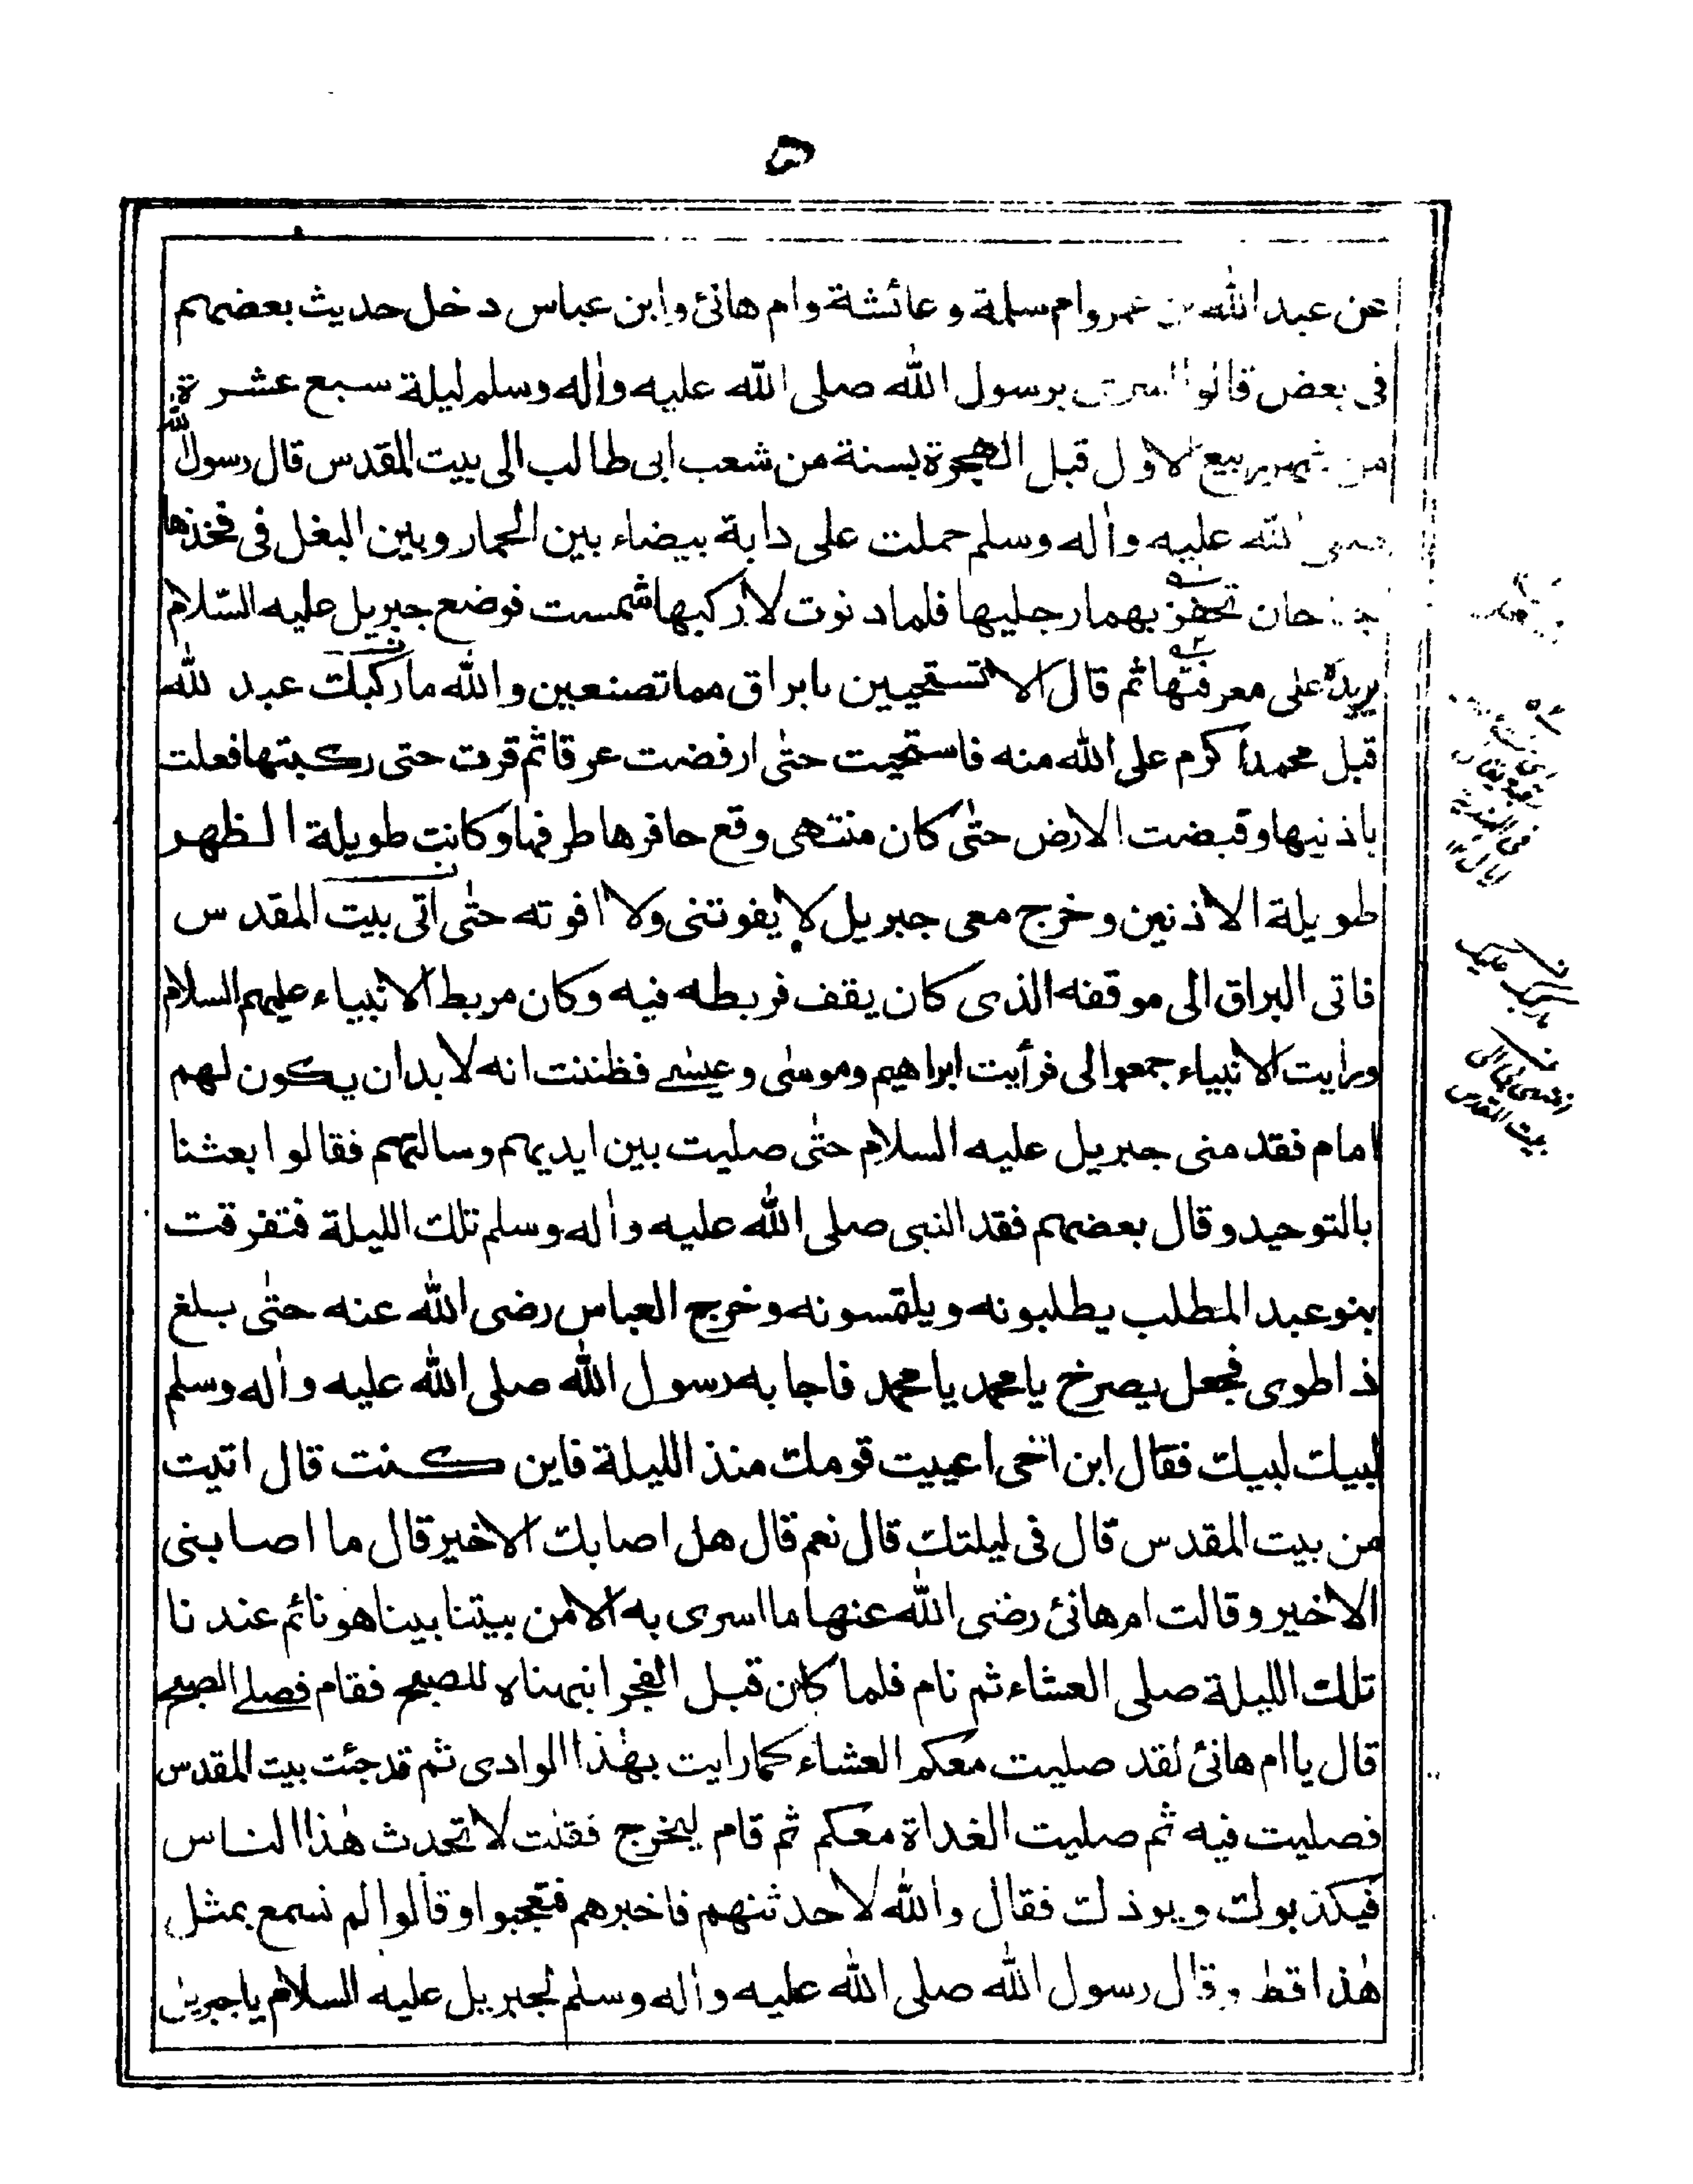 عن عبد الله بن عمرو وام سلمة و عائشة وام هانئ وابن عباس دخل حديث بعضهم
فى بعض قالوا اسرى برسول الله صلى الله عليه واٰله وسلم ليلة سبع عشرة
من شهر ربيع الاول قبل الهجرة بسنة من شعب ابى طالب الى بيت المقدس قال رسول الله
صلى الله عليه واٰله وسلم حملت على دابة بيضاء بين الحمار وبين البغل فى فخذها
جناحان تحفز بهما رجليها فلما دنوت لاركبها شمست فوضع جبريل عليه السّلام
يده على معرفتها ثم قال الا تستحيين يا براق مما تصنعين والله ما ركبك عبد لله
قبل محمد اكرم على الله منه فاستحيت حتٰى ارفضت عرقا ثم قرت حتى ركبتها فعلت
باذنيها وقبضت الارض حتٰى كان منتهى وقع حافرها طرفها وكانت طويلة الظهر
طويلة الاذنين وخرج معى جبريل لا يفوتنى ولا افوته حتٰى اتى بيت المقدس
فاتى البراق الى موقفه الذى كان يقف فربطه فيه وكان مربط الانبياء عليهم السلام
ورايت الانبياء جمعوا لى فرأيت ابراهيم وموسٰى وعيسٰے فظننت انه لا بد ان يكون لهم
امام فقد منى جبريل عليه السلام حتٰى صليت بين ايديهم وسالتهم فقالوا بعثنا
بالتوحيد وقال بعضهم فقد النبى صلى الله عليه واٰله وسلم تلك الليلة فتفرقت
بنو عبد المطلب يطلبونه ويلتمسونه وخرج العباس رضى الله عنه حتٰى بلغ
ذا طوى فجعل يصرخ يا محمد يا محمد فاجابه رسول الله صلى الله عليه واٰله وسلم
لبيك لبيك فقال ابن اخى اعييت قومك منذ الليلة فاين كنت قال اتيت
من بيت المقدس قال فى ليلتك قال نعم قال هل اصابك الا خير قال ما اصابنى
الا خير وقالت ام هانئ رضى الله عنها ما اسرى به الا من بيتنا بينا هو نائم عندنا
تلك الليلة صلى العشاء ثم نام فلما كان قبل الفجر انبهناه للصبح فقام فصلے الصبح
قال يا ام هانئ لقد صليت معكم العشاء كما رايت بهٰذا الوادى ثم قد جئت بيت المقدس
فصليت فيه ثم صليت الغداة معكم ثم قام ليخرج فقلت لا تحدث هٰذا الناس
فيكذبوك ويوذك فقال والله لاحدثنهم فاخبرهم فتعجبوا وقالوا لم نسمع بمثل
هٰذا قط وقال رسول الله صلى الله عليه واٰله وسلم لجبريل عليه السلام يا جبريل
بيت المقدس